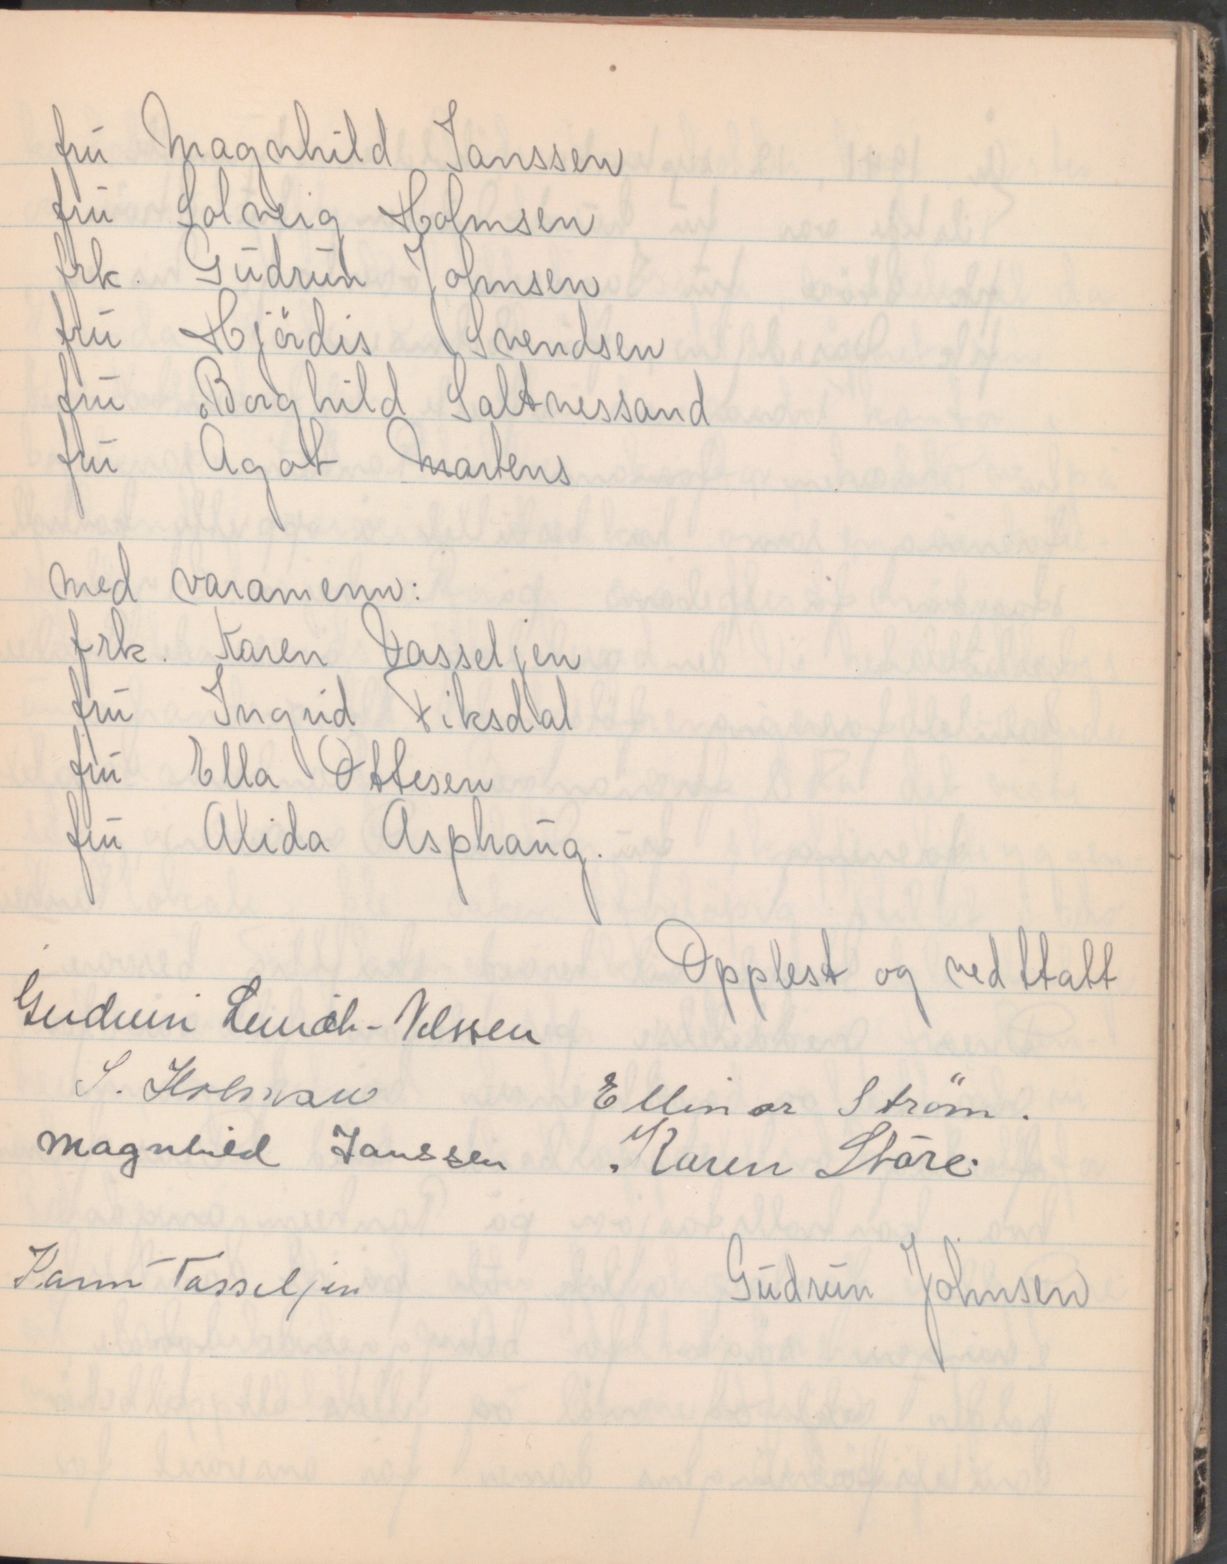 fru Magnhild Janssen
fru Solveig Holmsen
frk. Gudrun Johnsen
fru Hjördis Svendsen
fru Borghild Saltnessand
fru Ågot Martens
med varamenn:
frk. Karen Vasseljen
fru Ingrid Fiksdal
fru Ella Ottesen
fru Alida Asphaug.
Opplest og vedttatt
Gudrun
S. Holmsen Ellinor Ström.
Magnhild Janssen Karen Støre.
Karen Vasseljen Gudrun Johnsen